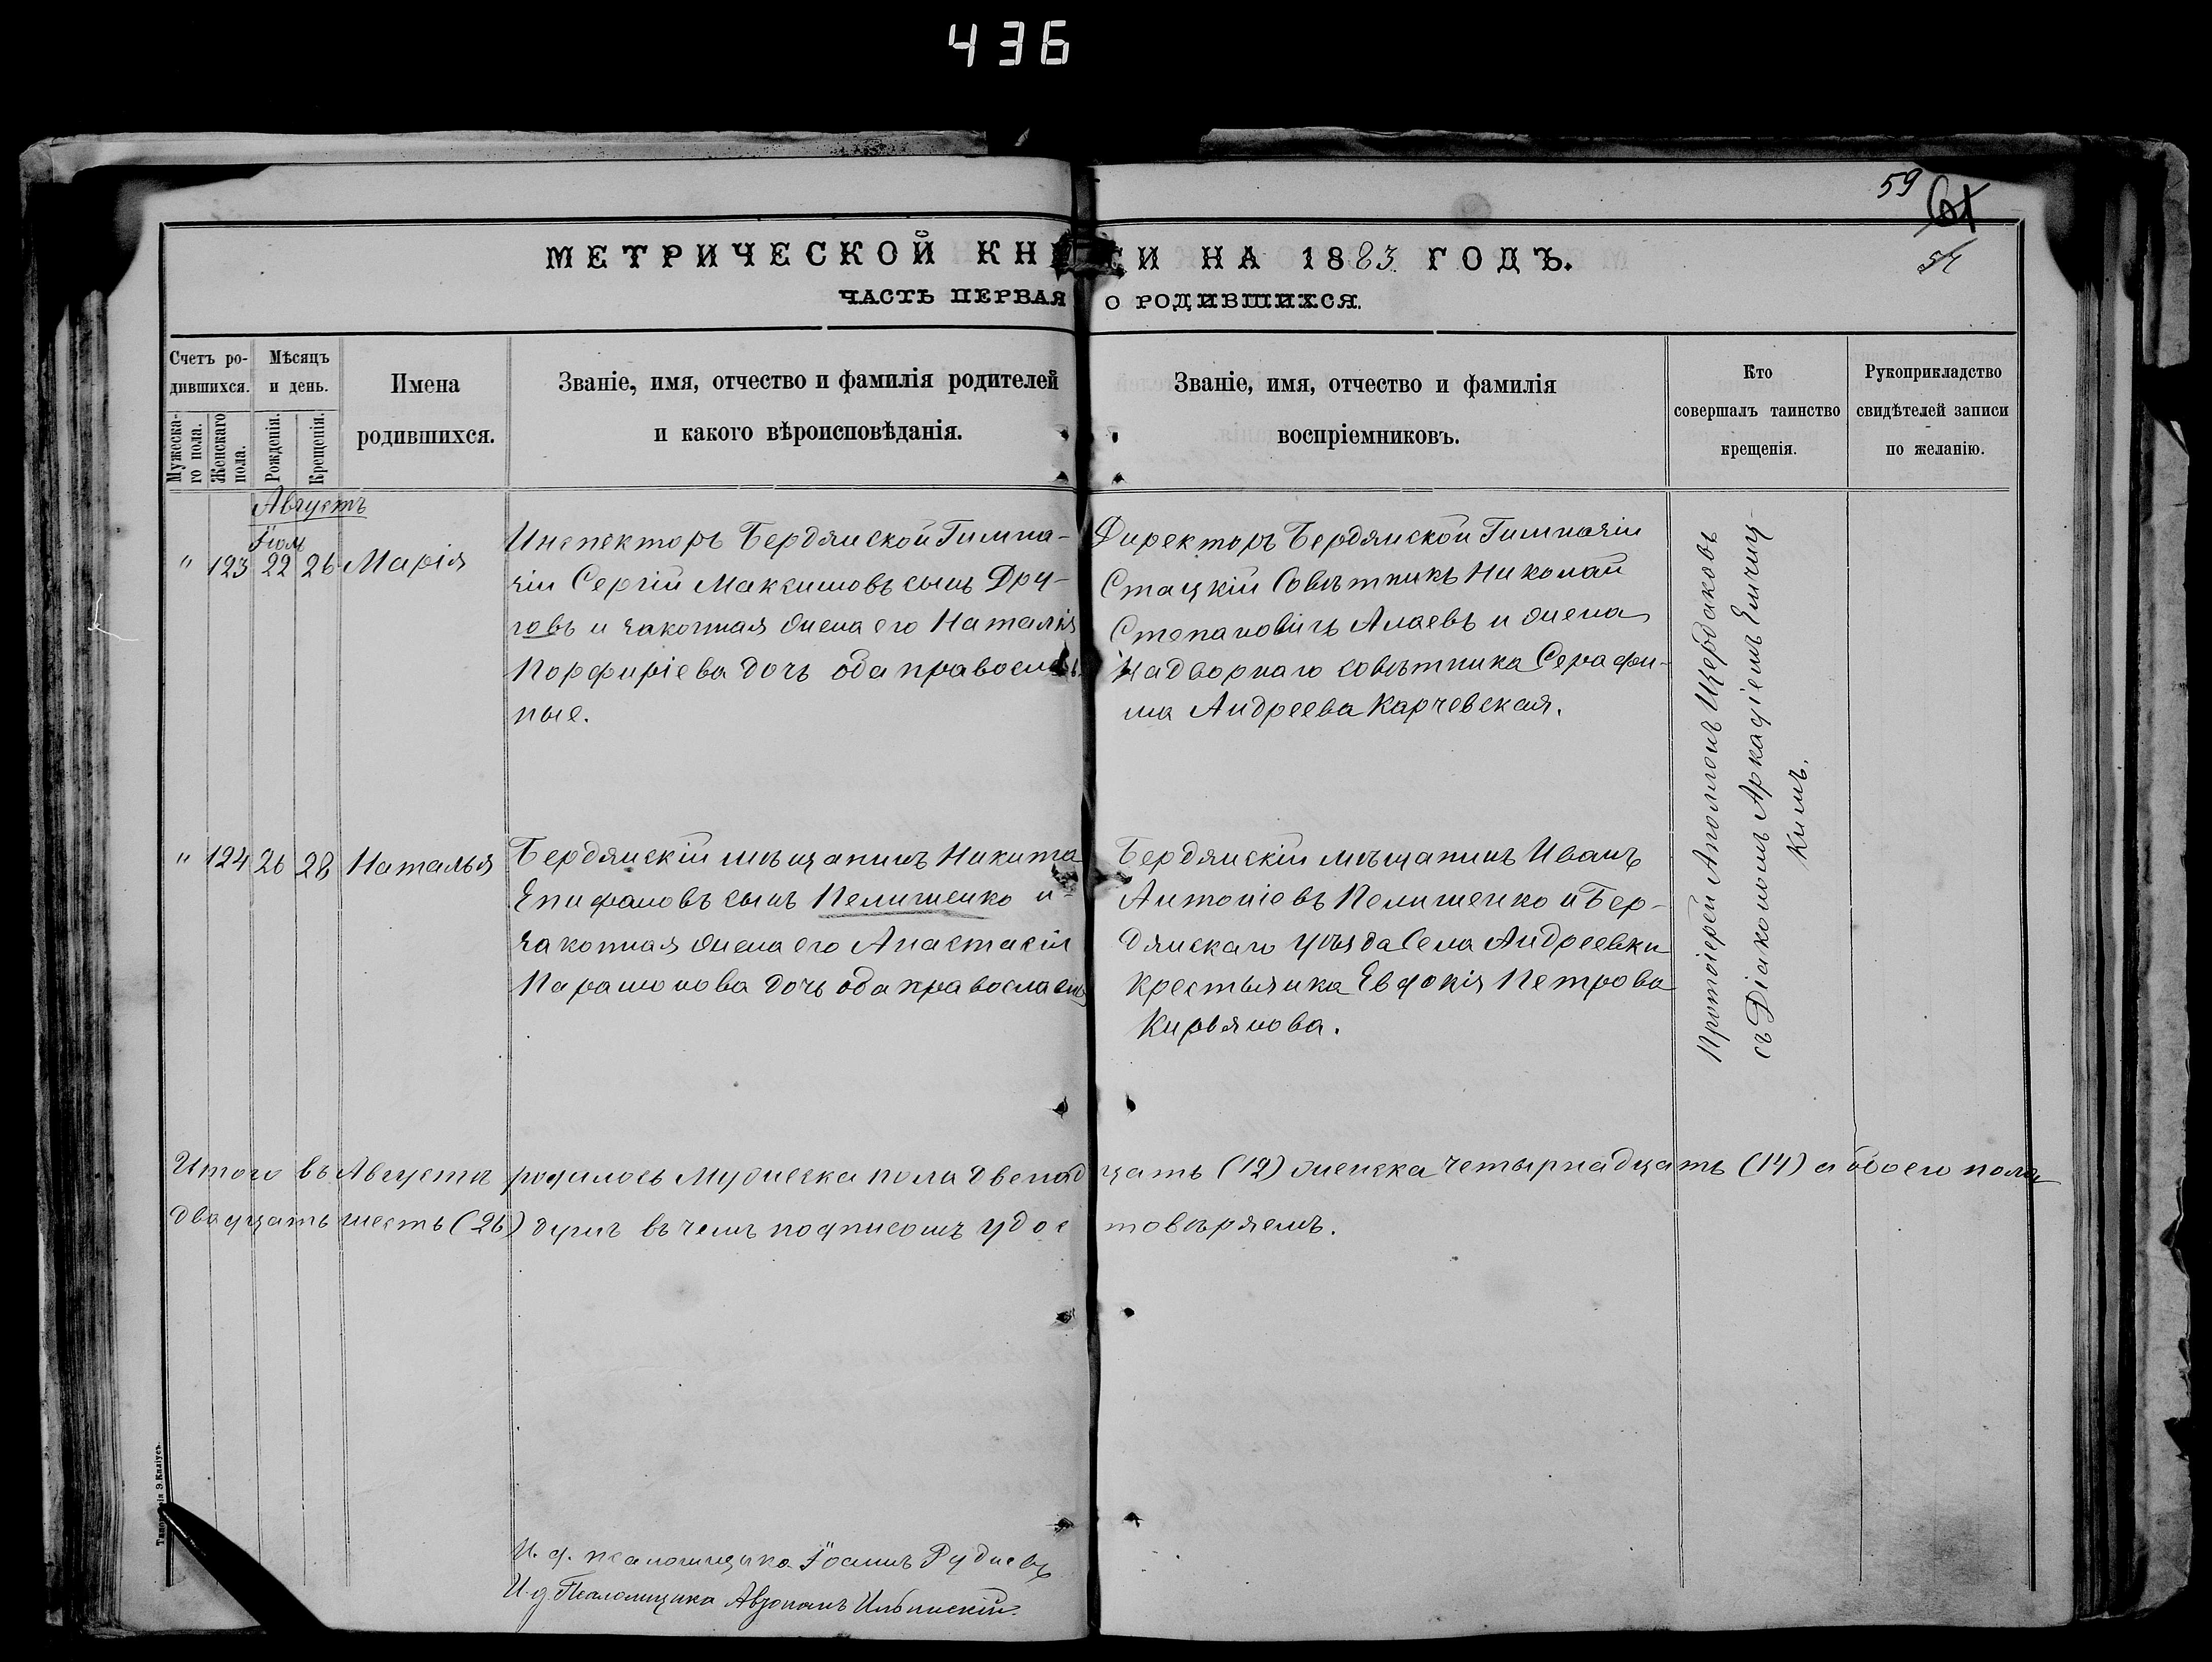 436
59
54
МЕТРИЧЕСКОЙ КНИГИ НА 1883 ГОДЪ.
ЧАСТЬ ПЕРВАЯ О РОДИВШИХСЯ.
Счетъ ро-
дившихся.
Мужеска-
го пола.
Женскаго
пола.
Мѣсяцъ
и день.
Рожденія.
Крещенія.
Имена
родившихся.
Званіе, имя, отчество и фамилія родителей
и какого вѣроисповѣданія.
Званіе, имя, отчество и фамилія
воспріемниковъ.
Кто
совершалъ таинство
крещенія.
Рукоприкладство
свидѣтелей записи
по желанію.
Августъ
Іюль
" 123 22 26 Марія
Инспекторъ Бердянской Гимна-
зіи Сергій Максимовъ сынъ Дру-
говъ и законная жена его Наталія
Порфиріева дочь оба православ-
ные.
Директоръ Бердянской Гимназіи
Статскій Совѣтникъ Николай
Степановичъ Алаевъ и жена
Надворнаго совѣтника Серафи-
ма Андреева Карчевская.
Протоіерей Аполлонъ Щербаковъ
съ Діакономъ Аркадіемъ
" 124 26 28 Наталья
Бердянскій мѣщанинъ Никита
Епифановъ сынъ Пелишенко и-
законная жена его Анастасія
Парамонова дочь оба православн
Бердянскій мѣщанинъ Иванъ
Антоніевъ Пелишенко и Бер-
дянскаго уѣзда Села Андреевки
крестьянка Евдокія Петрова
Кирьянова.
Итого въ Августѣ родилось Мужеска пола двенадцать (12) женска четырнадцать (14) а обоего пола
двадцать шесть (26) душъ въ чемъ подписомъ удостовѣряемъ.
И. д. псаломщика Іоаннъ Рудневъ
И. д. Псаломщика Ильинскій.
Типографія Э. Килиусъ.